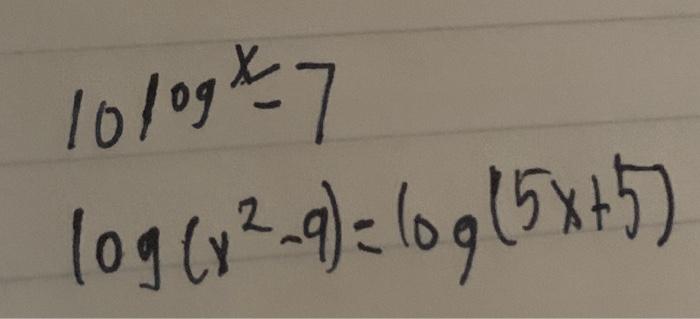 10^log x = 7
log(x²-9)=log(5x+5)